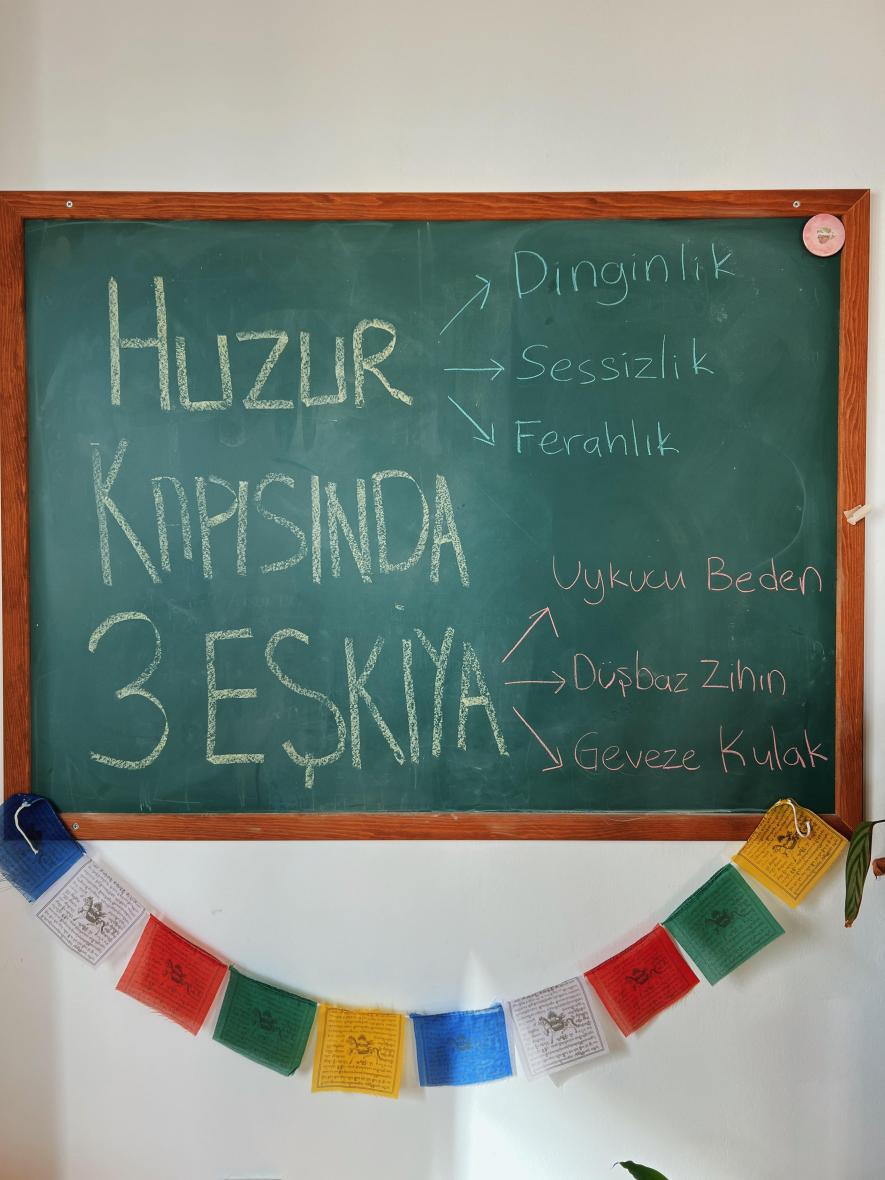 HUZUR
Dinginlik
Sessizlik
Ferahlık
KAPISINDA
3 EŞKİYA
Uykucu Beden
Düşbaz Zihin
Geveze Kulak